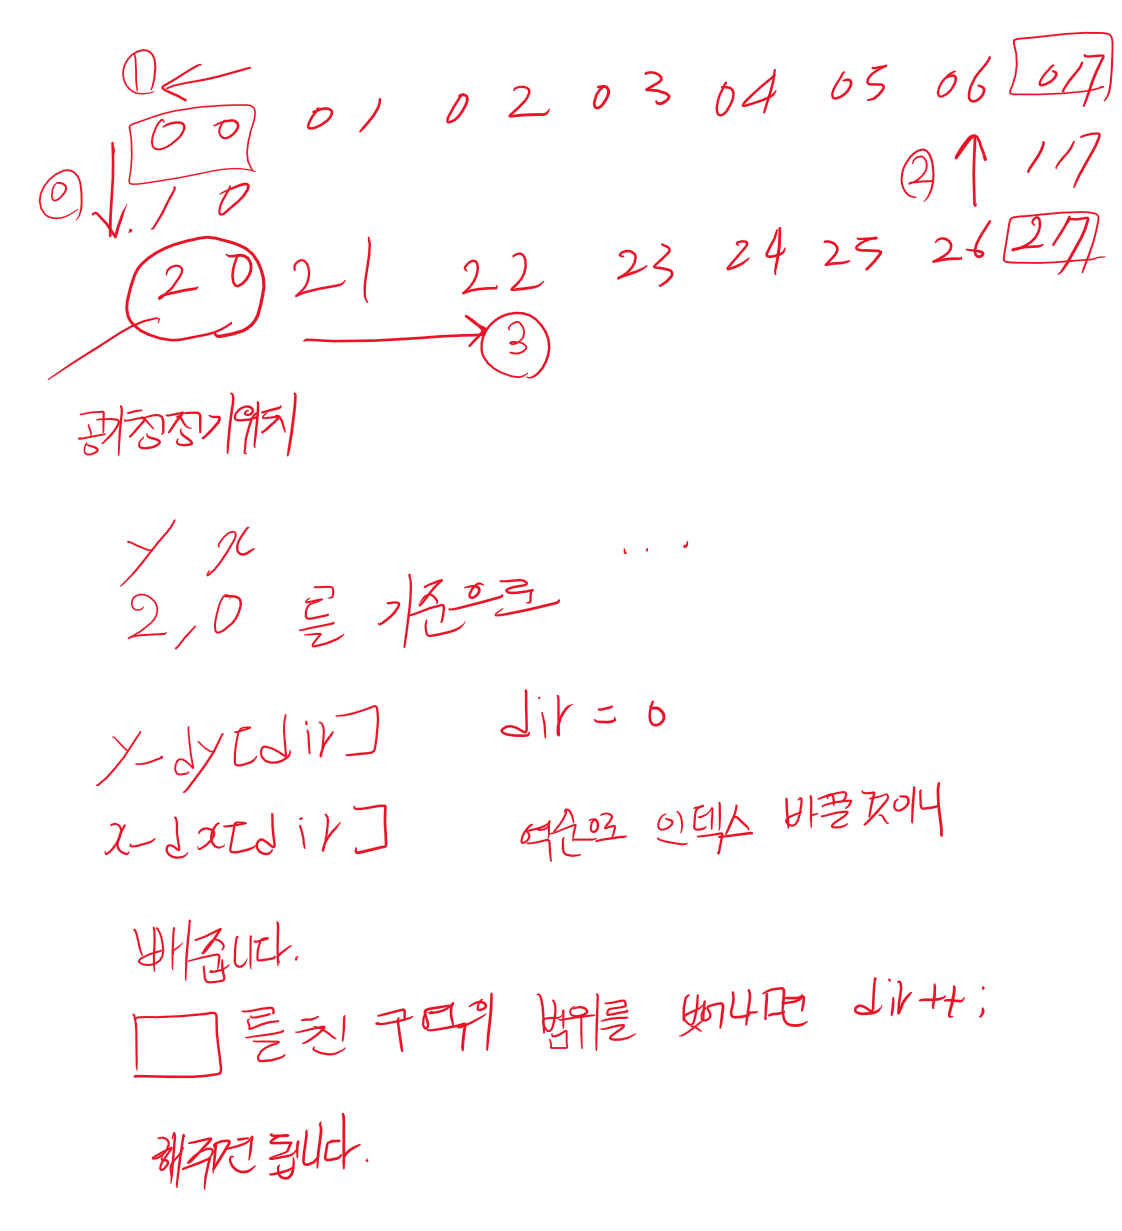 ①
00 01 02 03 04 05 06 07
⓪ 10 ② 17
20 21 22 23 24 25 26 27
③
공기청정기위치
y x
2,0 를 기준으로 ...
y-dy[dir] dir = 0
x-dx[dir] 역순으로 인덱스 바꿀것이니
빼줍니다.
를 친 구역의 범위를 벗어나면 dir++;
해주면 됩니다.